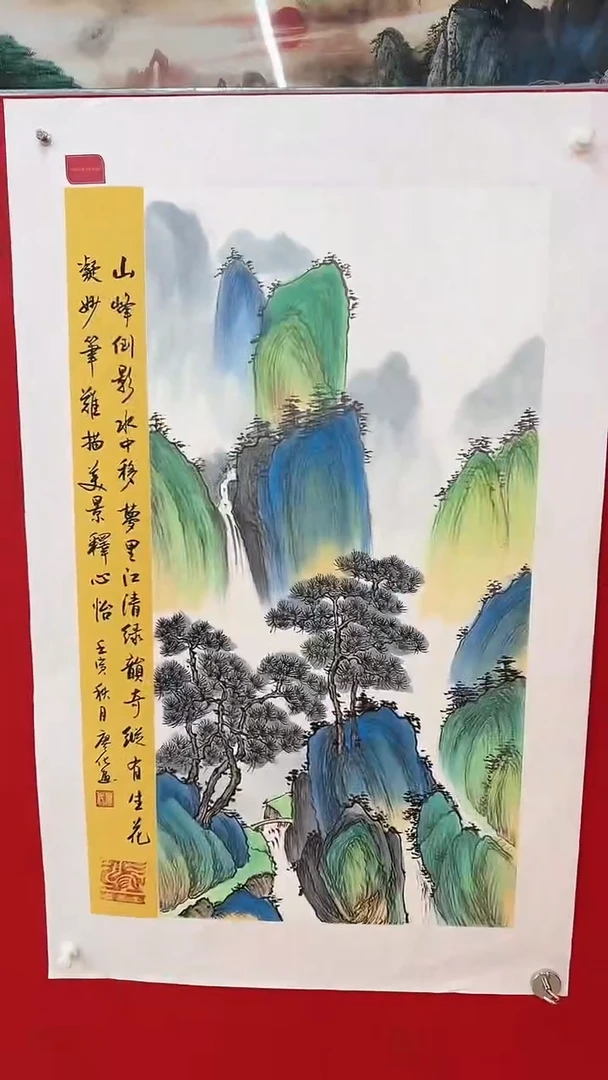 山峰倒影水中移夢里江清绿韻奇縱有生花
凝妙筆難描美景釋心怡
壬寅秋月廖化画